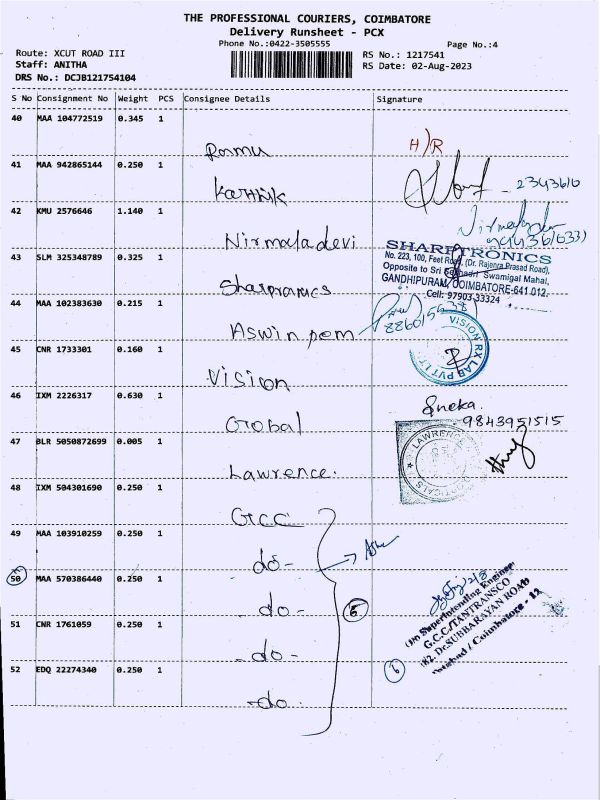 THE PROFESSIONAL COURIERS, COIMBATORE
Delivery Runsheet - PCX
Phone No.:0422-3505555
Page No.:4
Route: XCUT ROAD III
RS No.: 1217541
Staff: ANITHA
RS Date: 02-Aug-2023
DRS No.: DCJB121754104
S No Consignment No Weight PCS Consignee Details Signature
40 MAA 104772519 0.345 1
Rammu H)R
41 MAA 942865144 0.250 1
Karthik 2343610
42 KMU 2576646 1.140 1
Nirmala devi Nirmaladevi
43 SLM 325348789 0.325 1
SHARPTRONICS
No. 223, 100, Feet Road, (Dr. Rajenra Prasad Road),
Opposite to Sri Swamigal Mahal,
GANDHIPURAM, COIMBATORE-641 012.
Cell: 97903 33324
Sharpranics
44 MAA 102383630 0.215 1
Aswin pem
45 CNR 1733301 0.160 1
VISION RX LAB PVT LTD
Vision
46 IXM 2226317 0.630 1
Sneka.
Global - 9843951515
47 BLR 5050872699 0.005 1
LAWRENCE
Lawrence.
48 IXM 504301690 0.250 1
GCC
49 MAA 103910259 0.250 1
do-
50 MAA 570386440 0.250 1
-do- 5
51 CNR 1761059 0.250 1
O/o Superintending Engineer
G.C.C/TANTRANSCO
182, Dr.SUBBARAYAN ROAD
Tatabad / Coimbatore - 12
-do-
52 EDQ 22274340 0.250 1
-do-